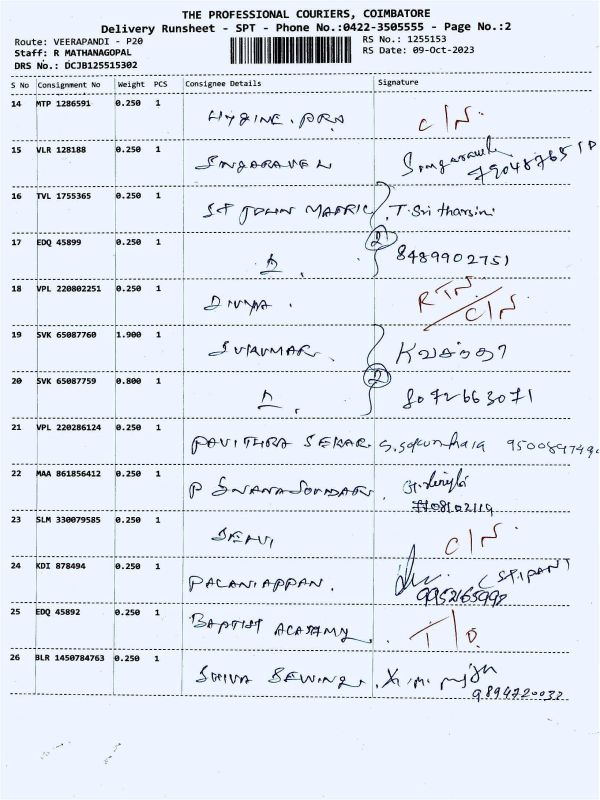 THE PROFESSIONAL COURIERS, COIMBATORE
Delivery Runsheet - SPT - Phone No.:0422-3505555 - Page No.:2
Route: VEERAPANDI - P20
RS No.: 1255153
Staff: R MATHANAGOPAL
RS Date: 09-Oct-2023
DRS No.: DCJB125515302
S No Consignment No Weight PCS Consignee Details Signature
14 MTP 1286591 0.250 1 HYGINE. PRO C/N.
15 VLR 128188 0.250 1 SNGARAVEL
16 TVL 1755365 0.250 1 ST JOHN MATRIC T. Sri tharsini
17 EDQ 45899 0.250 1 2 8489902751
18 VPL 220802251 0.250 1 DIVYA. RTN. C/N
19 SVK 65087760 1.900 1 SUKUMAR.
20 SVK 65087759 0.800 1 2 8072663071
21 VPL 220286124 0.250 1 PAVITHRA SEKAR
22 MAA 861856412 0.250 1 P 7708102119
23 SLM 330079585 0.250 1 SELVI C/N.
24 KDI 878494 0.250 1 PALANIAPPAN. 9952165998
25 EDQ 45892 0.250 1 BAPTIST ACADEMY. T/D.
26 BLR 1450784763 0.250 1 SHIVA SEWING. 9894720032